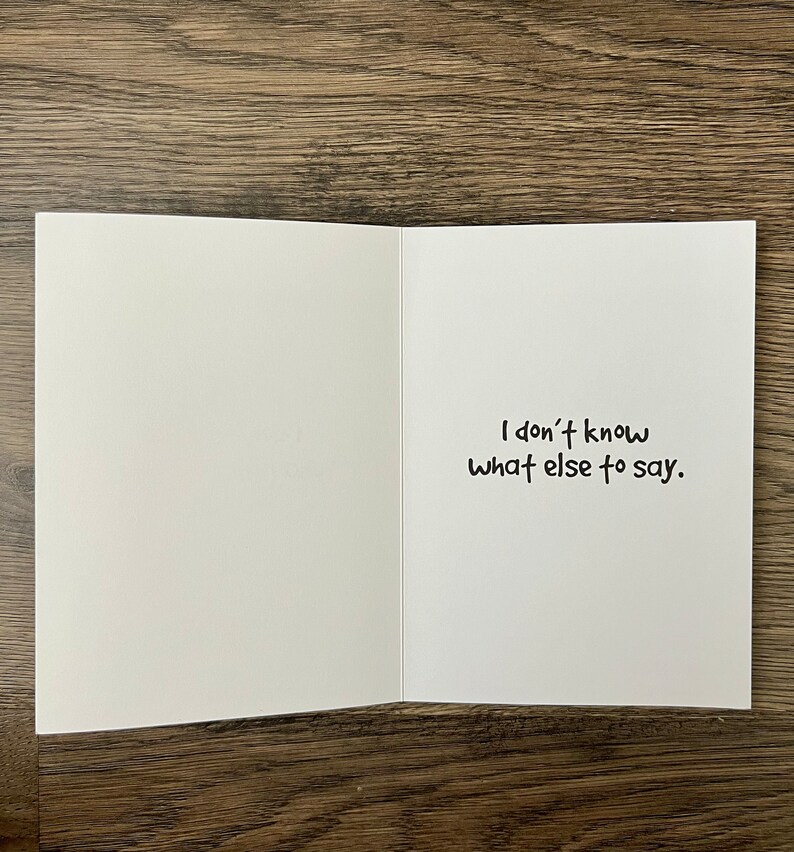 I don't know
what else to say.